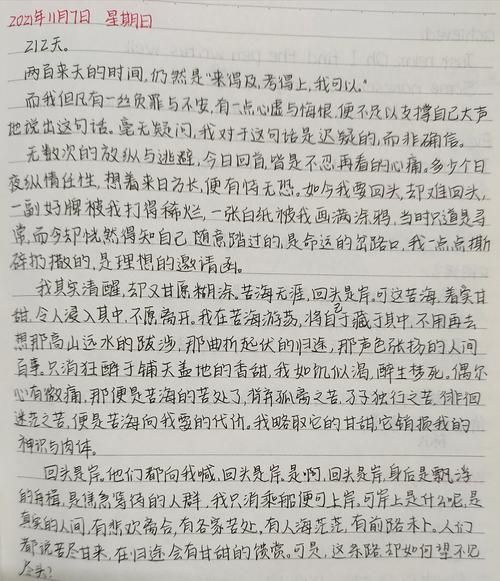 2021年11月7日 星期日
212天。
两百来天的时间,仍然是“来得及,考得上,我可以。”
而我但凡有一丝负罪与不安,有一点心虚与悔恨,便不足以支撑自己大声
地说出这句话。毫无疑问,我对于这句话是迟疑的,而非确信。
无数次的放纵与逃避,今日回首,皆是不忍再看的心痛。多少个日
夜纵情任性,想着来日方长,便有恃无恐。如今我要回头,却难回头,
一副好牌被我打得稀烂,一张白纸被我画满涂鸦,当时只道是寻
常,而今却恍然得知自己随意踏过的,是命运的岔路口,我一点点撕
碎扔撒的,是理想的邀请函。
我其实清醒,却又甘愿糊涂。苦海无涯,回头是岸。可这苦海,着实甘
甜,令人浸入其中,不愿离开。我在苦海游荡,将自己藏于其中,不用再去
想那高山远水的跋涉,那曲折起伏的归途,那声色张扬的人间
百事,只消狂醉于铺天盖地的香甜,我如饥似渴,醉生梦死。偶尔
心有微痛,那便是苦海的苦处了,背弃孤离之苦,孑孑独行之苦,徘徊
迷茫之苦,便是苦海向我要的代价。我略取它的甘甜,它销损我的
神识与肉体。
回头是岸,他们都向我喊,回头是岸,是啊,回头是岸,身后是飘浮
的舟楫,是焦急等待的人群,我只消乘船便可上岸。可岸上是什么呢,是
真实的人间,有悲欢离合,有各家苦处,有人海茫茫,有前路未卜。人们
都说苦尽甘来,在归途会有甘甜的馈赏。可是,这条路,却如何望不见
尽头?